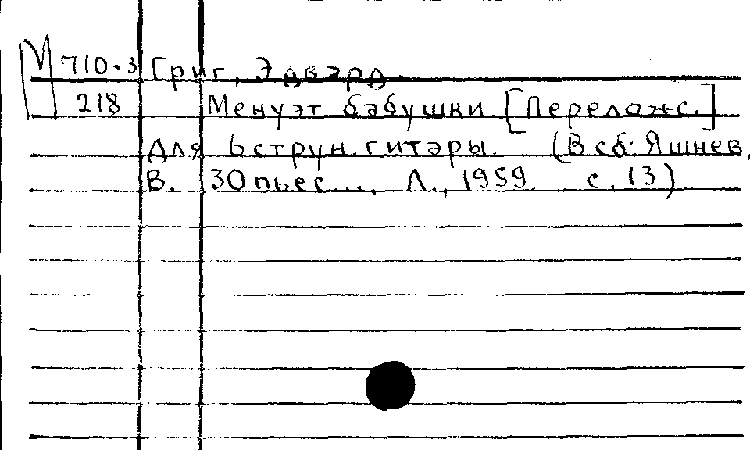 М 710-3 Григ, Эдвард
218 Менуэт бабушки [Перелож.]
для 6струн. гитары. (В сб: Яшнев,
В. 30 пьес..., Л., 1959 с. 13)